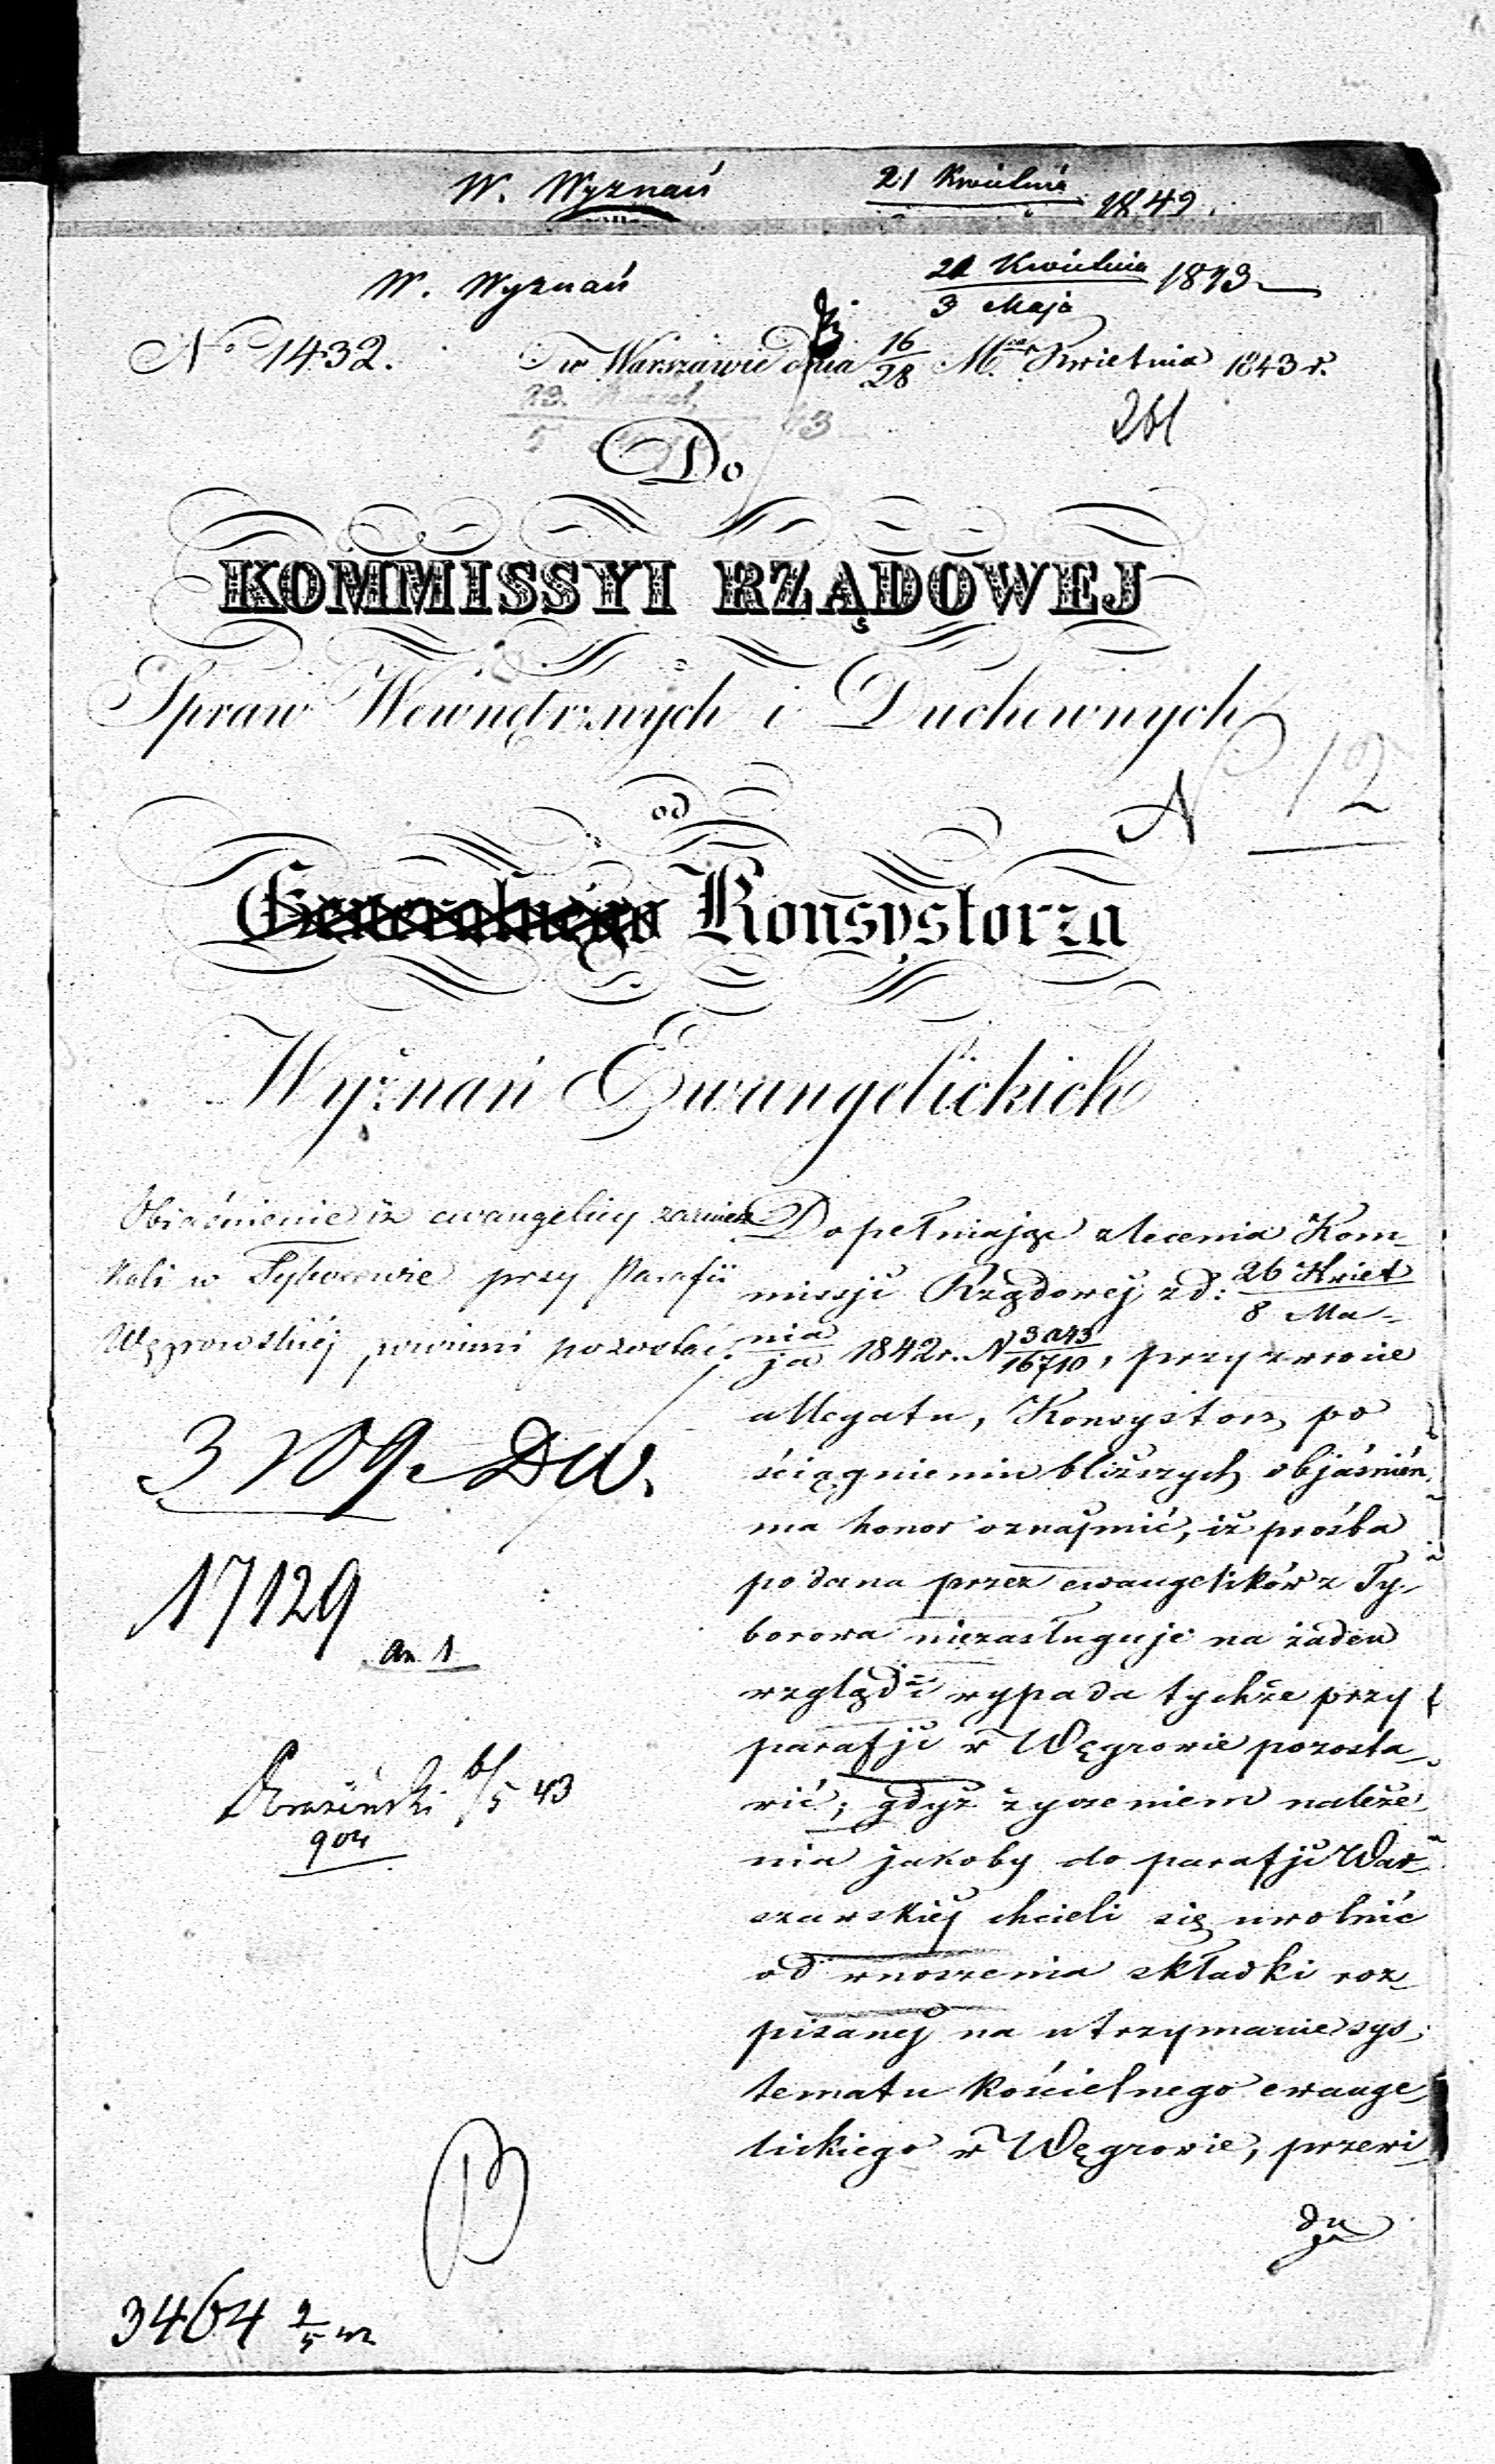 W. Wyznań 21 Kwietnia 1849.
W. Wyznań 21 Kwietnia 1843
3 Maja
No 1432. w Warszawie dnia 16/28 Kwietnia 1843 r.
261
Do
KOMMISSYI RZĄDOWEJ
Spraw Wewnętrznych i Duchownych
N 12
od
Generalnego Konsystorza
Wyznań Ewangelickich
Obiaśnienie iż ewangelicy zamiesz
kali w Tyborowie przy Parafii
Węgrowskiéj powinni pozostać.
17129
an 1
904
3464 2/5
Dopełniając zlecenia Kom-
missji Rządowej z d: 26 Kwiet
8 Ma-
nia
ja 1842 r. N 16710, przy zwrocie
allegatu, Konsystorz po
ściągnieniu bliższych objaśnień,
ma honor oznajmić, iż prośba
podana przez ewangelików z Ty-
borowa niezasługuje na żaden
wzgląd i wypada tychże przy
parafji w Węgrowie pozosta-
wić; gdyż życzeniem należe-
nia jakoby do parafji War-
szawskiej chcieli się uwolnić
od wnoszenia składki roz-
pisanej na utrzymanie sys-
tematu kościelnego ewange-
lickiego w Węgrowie, przewi-
du